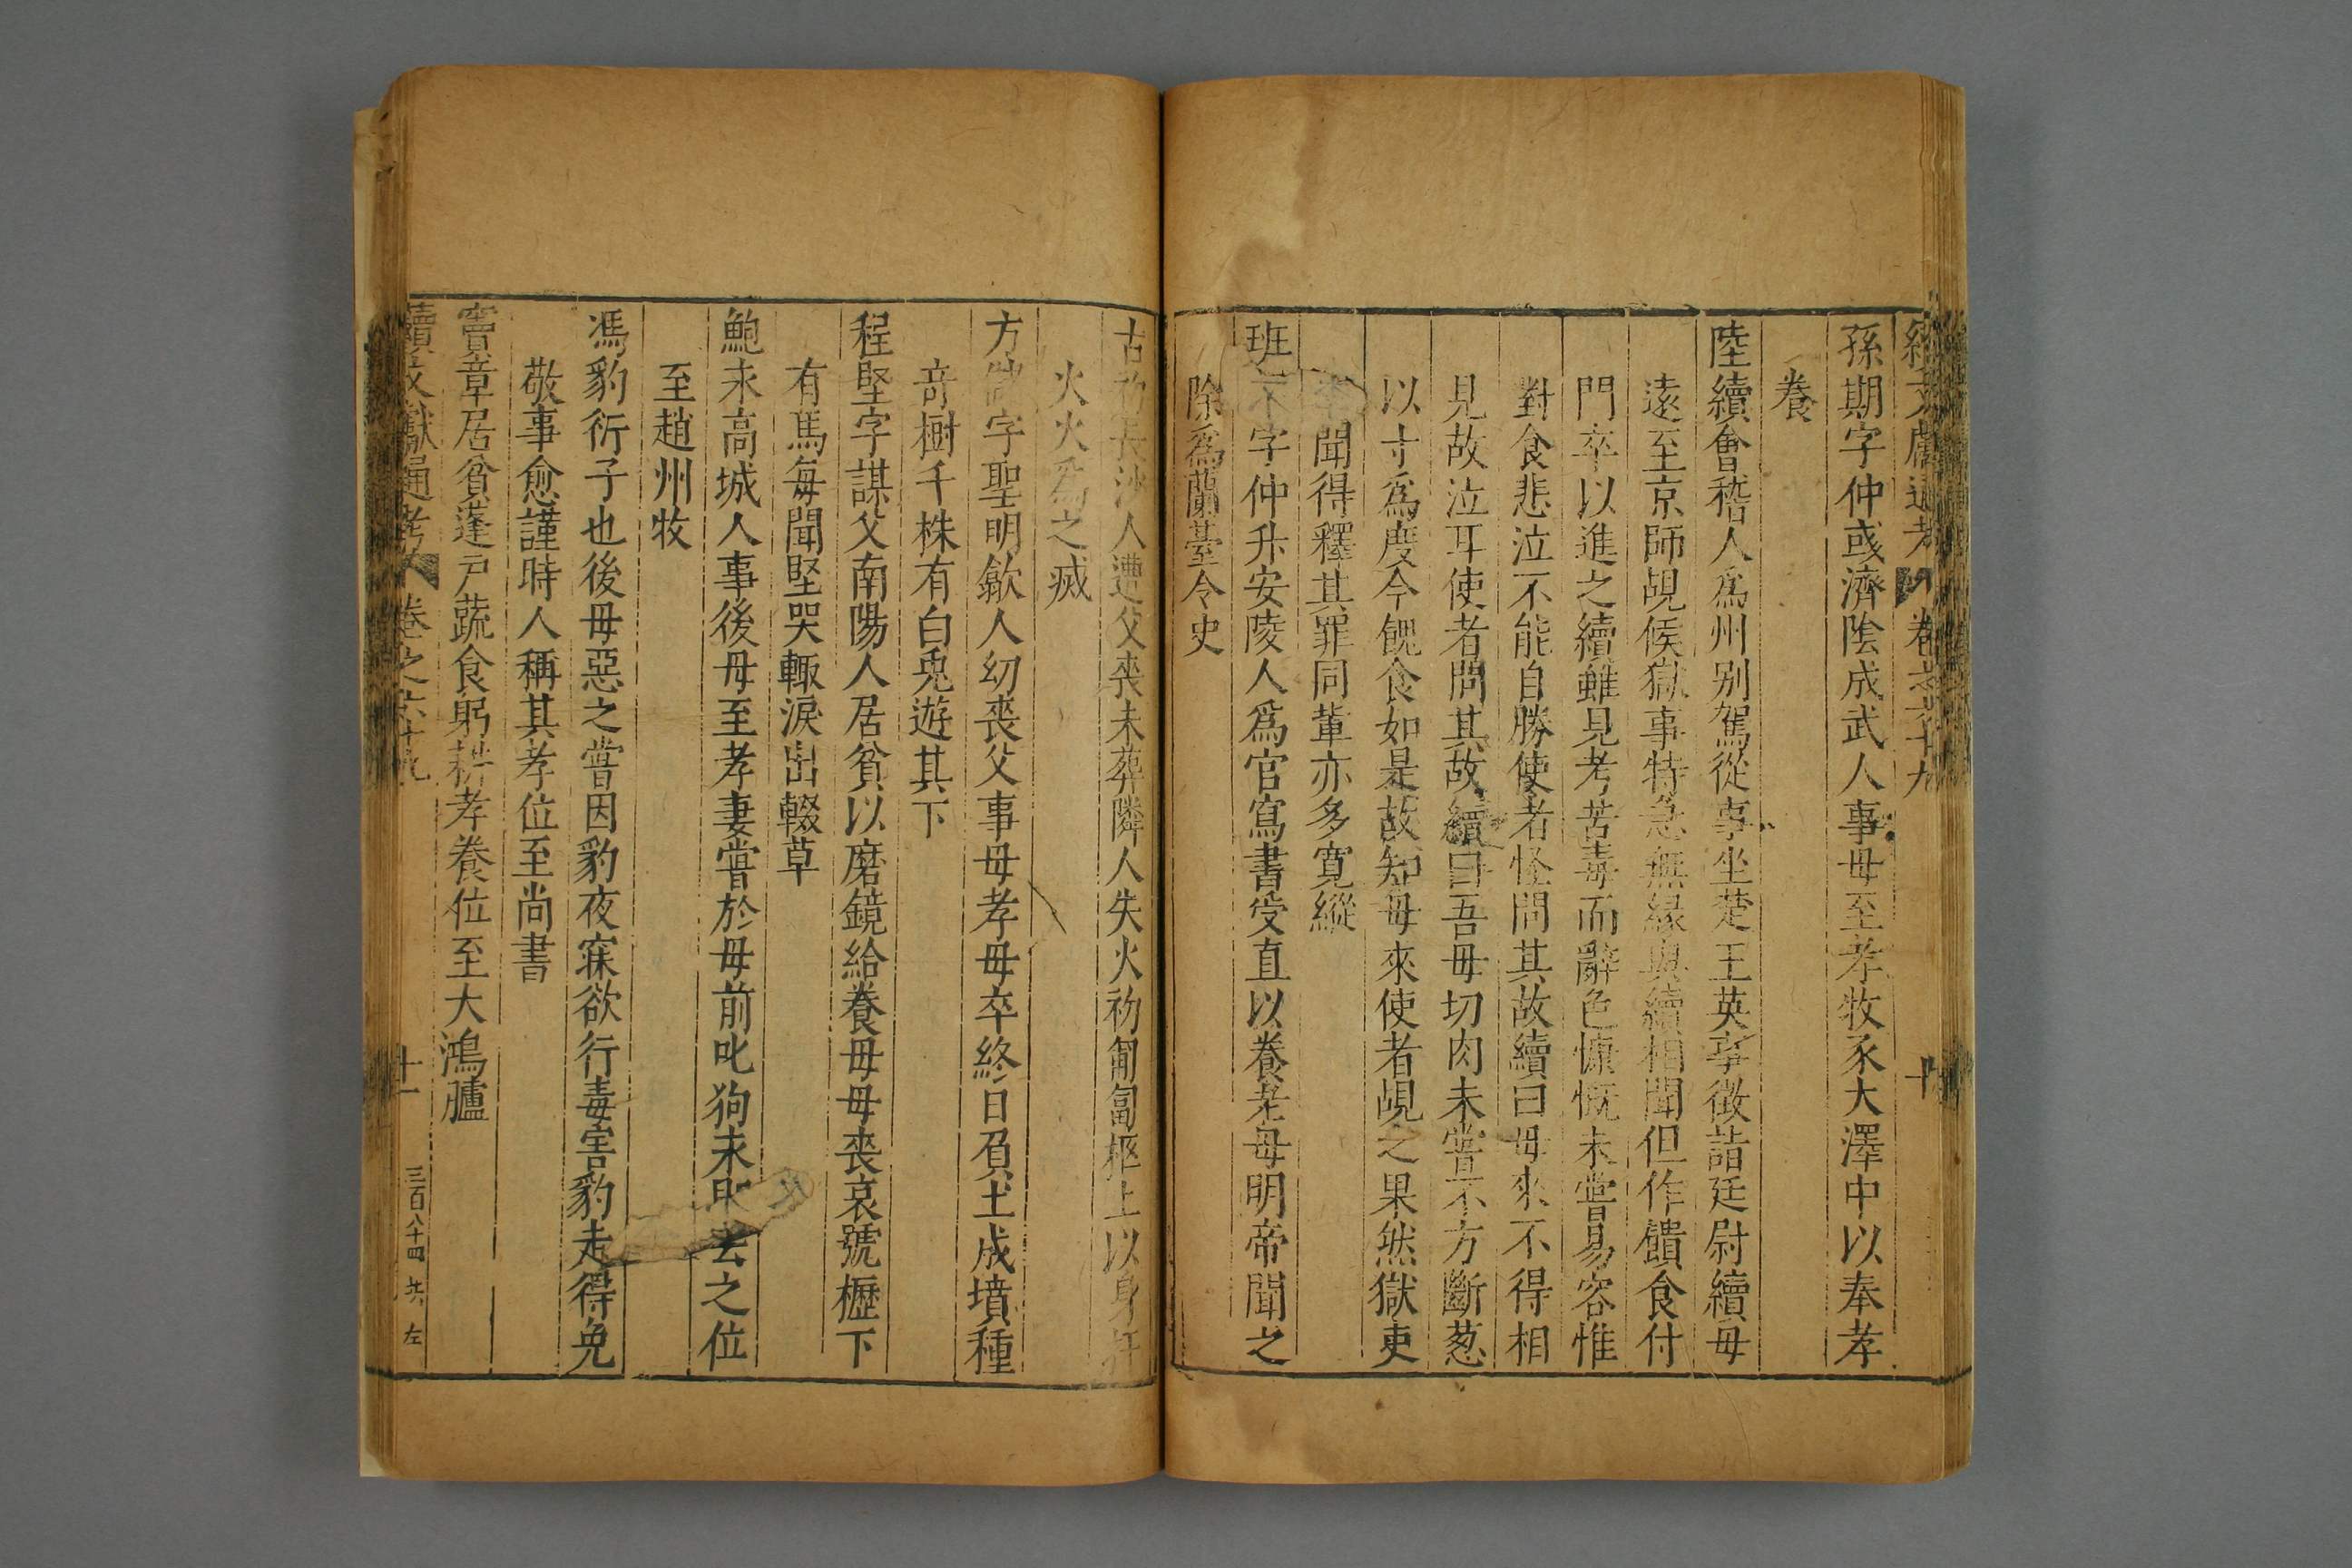 續文獻通考 卷之六十九 十
孫期字仲彧濟陰成武人事母至孝牧豕大澤中以奉孝
養
陸續會稽人爲州別駕從事坐楚王英事徵詣廷尉續母
遠至京師覘候獄事特急無緣與續相聞但作饋食付
門卒以進之續雖見考苦毒而辭色慷慨未嘗易容惟
對食悲泣不能自勝使者怪問其故續曰母來不得相
見故泣耳使者問其故續曰吾母切肉未嘗不方斷葱
以寸爲度今餽食如是故知母來使者覘之果然獄吏
聞得釋其罪同輩亦多寬縱
班 字仲升安陵人爲官寫書受直以養老母明帝聞之
除爲蘭臺令史
古初長沙人遭父喪未葬隣人失火初匍匐柩上以身扞
火火爲之滅
方 字聖明歙人幼喪父事母孝母卒終日負土成墳種
奇樹千株有白兎遊其下
程堅字謀父南陽人居貧以磨鏡給養母母喪哀號櫪下
有馬每聞堅哭輙淚出輟草
鮑永高城人事後母至孝妻嘗於母前叱狗未 去之位
至趙州牧
馮豹衍子也後母惡之嘗因豹夜寐欲行毒害豹走得免
敬事愈謹時人稱其孝位至尚書
竇章居貧蓬戸蔬食躬耕孝養位至大鴻臚
續文獻通考 卷之六十九 十一 三百八十四 左